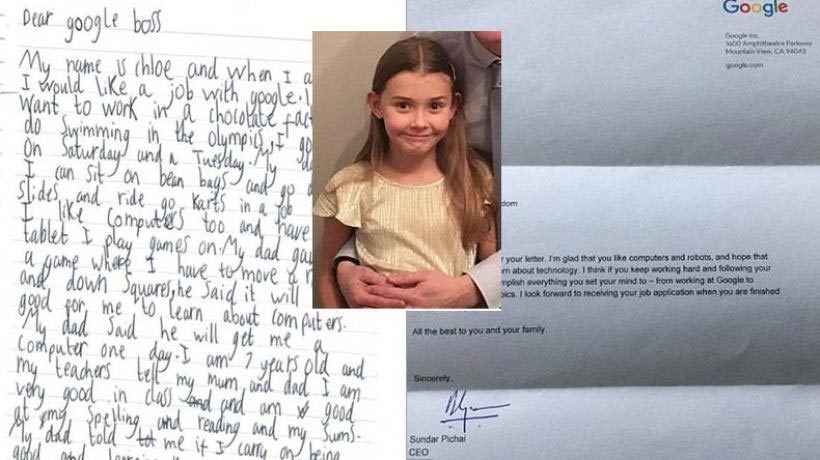 Dear google boss
My name is chloe and when I a
I would like a job with google. I
want to work in a chocolate fac
do swimming in the olympics. I go
on Saturday and a Tuesday. My da
I can sit on bean bags and go d
slides and ride go karts in a job
I like computers too and have
tablet I play games on. My dad ga
a game where I have to move a r
and down squares, he said it will
good for me to learn about computers.
My dad said he will get me a
computer one day. I am 7 years old and
my teachers tell my mum and dad I am
very good in class and and am good
at my spelling and reading and my sums.
My dad told me if I carry on being
good and learning
Google
Google Inc.
1600 Amphitheatre Parkway
Mountain View, CA 94043
google.com
dom
r your letter. I'm glad that you like computers and robots, and hope that
rn about technology. I think if you keep working hard and following your
mplish everything you set your mind to – from working at Google to
pics. I look forward to receiving your job application when you are finished
All the best to you and your family.
Sincerely,
Sundar Pichai
CEO